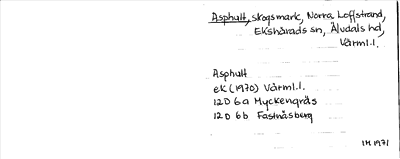 Asphult, skogsmark, Norra Loffstrand,
Ekshärads sn, Älvdals hd,
Värml.l.
Asphult
eK (1970) Värml.l.
12D 6a Myckengräs
12D 6b Fastnäsberg
IM 1971